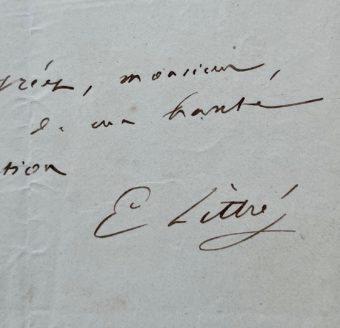 gréez, monsieur,
de ma haute
tion
E Littré